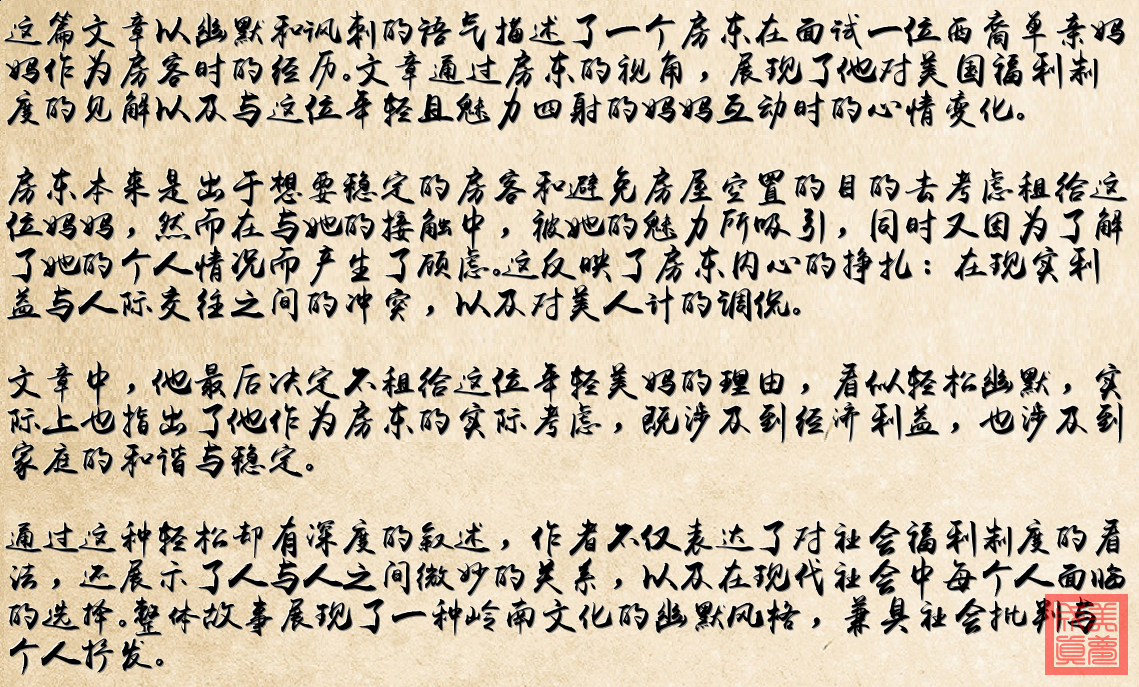 这篇文章以幽默和讽刺的语气描述了一个房东在面试一位西裔单亲妈
妈作为房客时的经历。文章通过房东的视角，展现了他对美国福利制
度的见解以及与这位年轻且魅力四射的妈妈互动时的心情变化。
房东本来是出于想要稳定的房客和避免房屋空置的目的去考虑租给这
位妈妈，然而在与她的接触中，被她的魅力所吸引，同时又因为了解
了她的个人情况而产生了顾虑。这反映了房东内心的挣扎：在现实利
益与人际交往之间的冲突，以及对美人计的调侃。
文章中，他最后决定不租给这位年轻美妈的理由，看似轻松幽默，实
际上也指出了他作为房东的实际考虑，既涉及到经济利益，也涉及到
家庭的和谐与稳定。
通过这种轻松却有深度的叙述，作者不仅表达了对社会福利制度的看
法，还展示了人与人之间微妙的关系，以及在现代社会中每个人面临
的选择。整体故事展现了一种岭南文化的幽默风格，兼具社会批判与
个人抒发。